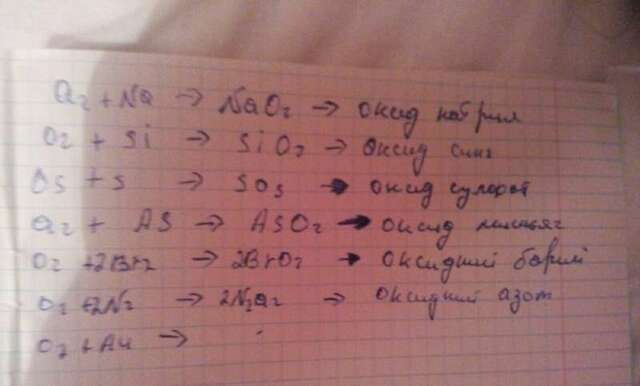 O₂ + Na → NaO₂ → оксид натрия
O₂ + Si → SiO₂ → оксид
O₅ + S → SO₅ → оксид
O₂ + AS → ASO₂ → оксид
O₂ + 2Br₂ → 2BrO₂ → оксидний барий
O₂ + 2N₂ → 2N₂O₂ → оксидний азот
O₂ + Au →